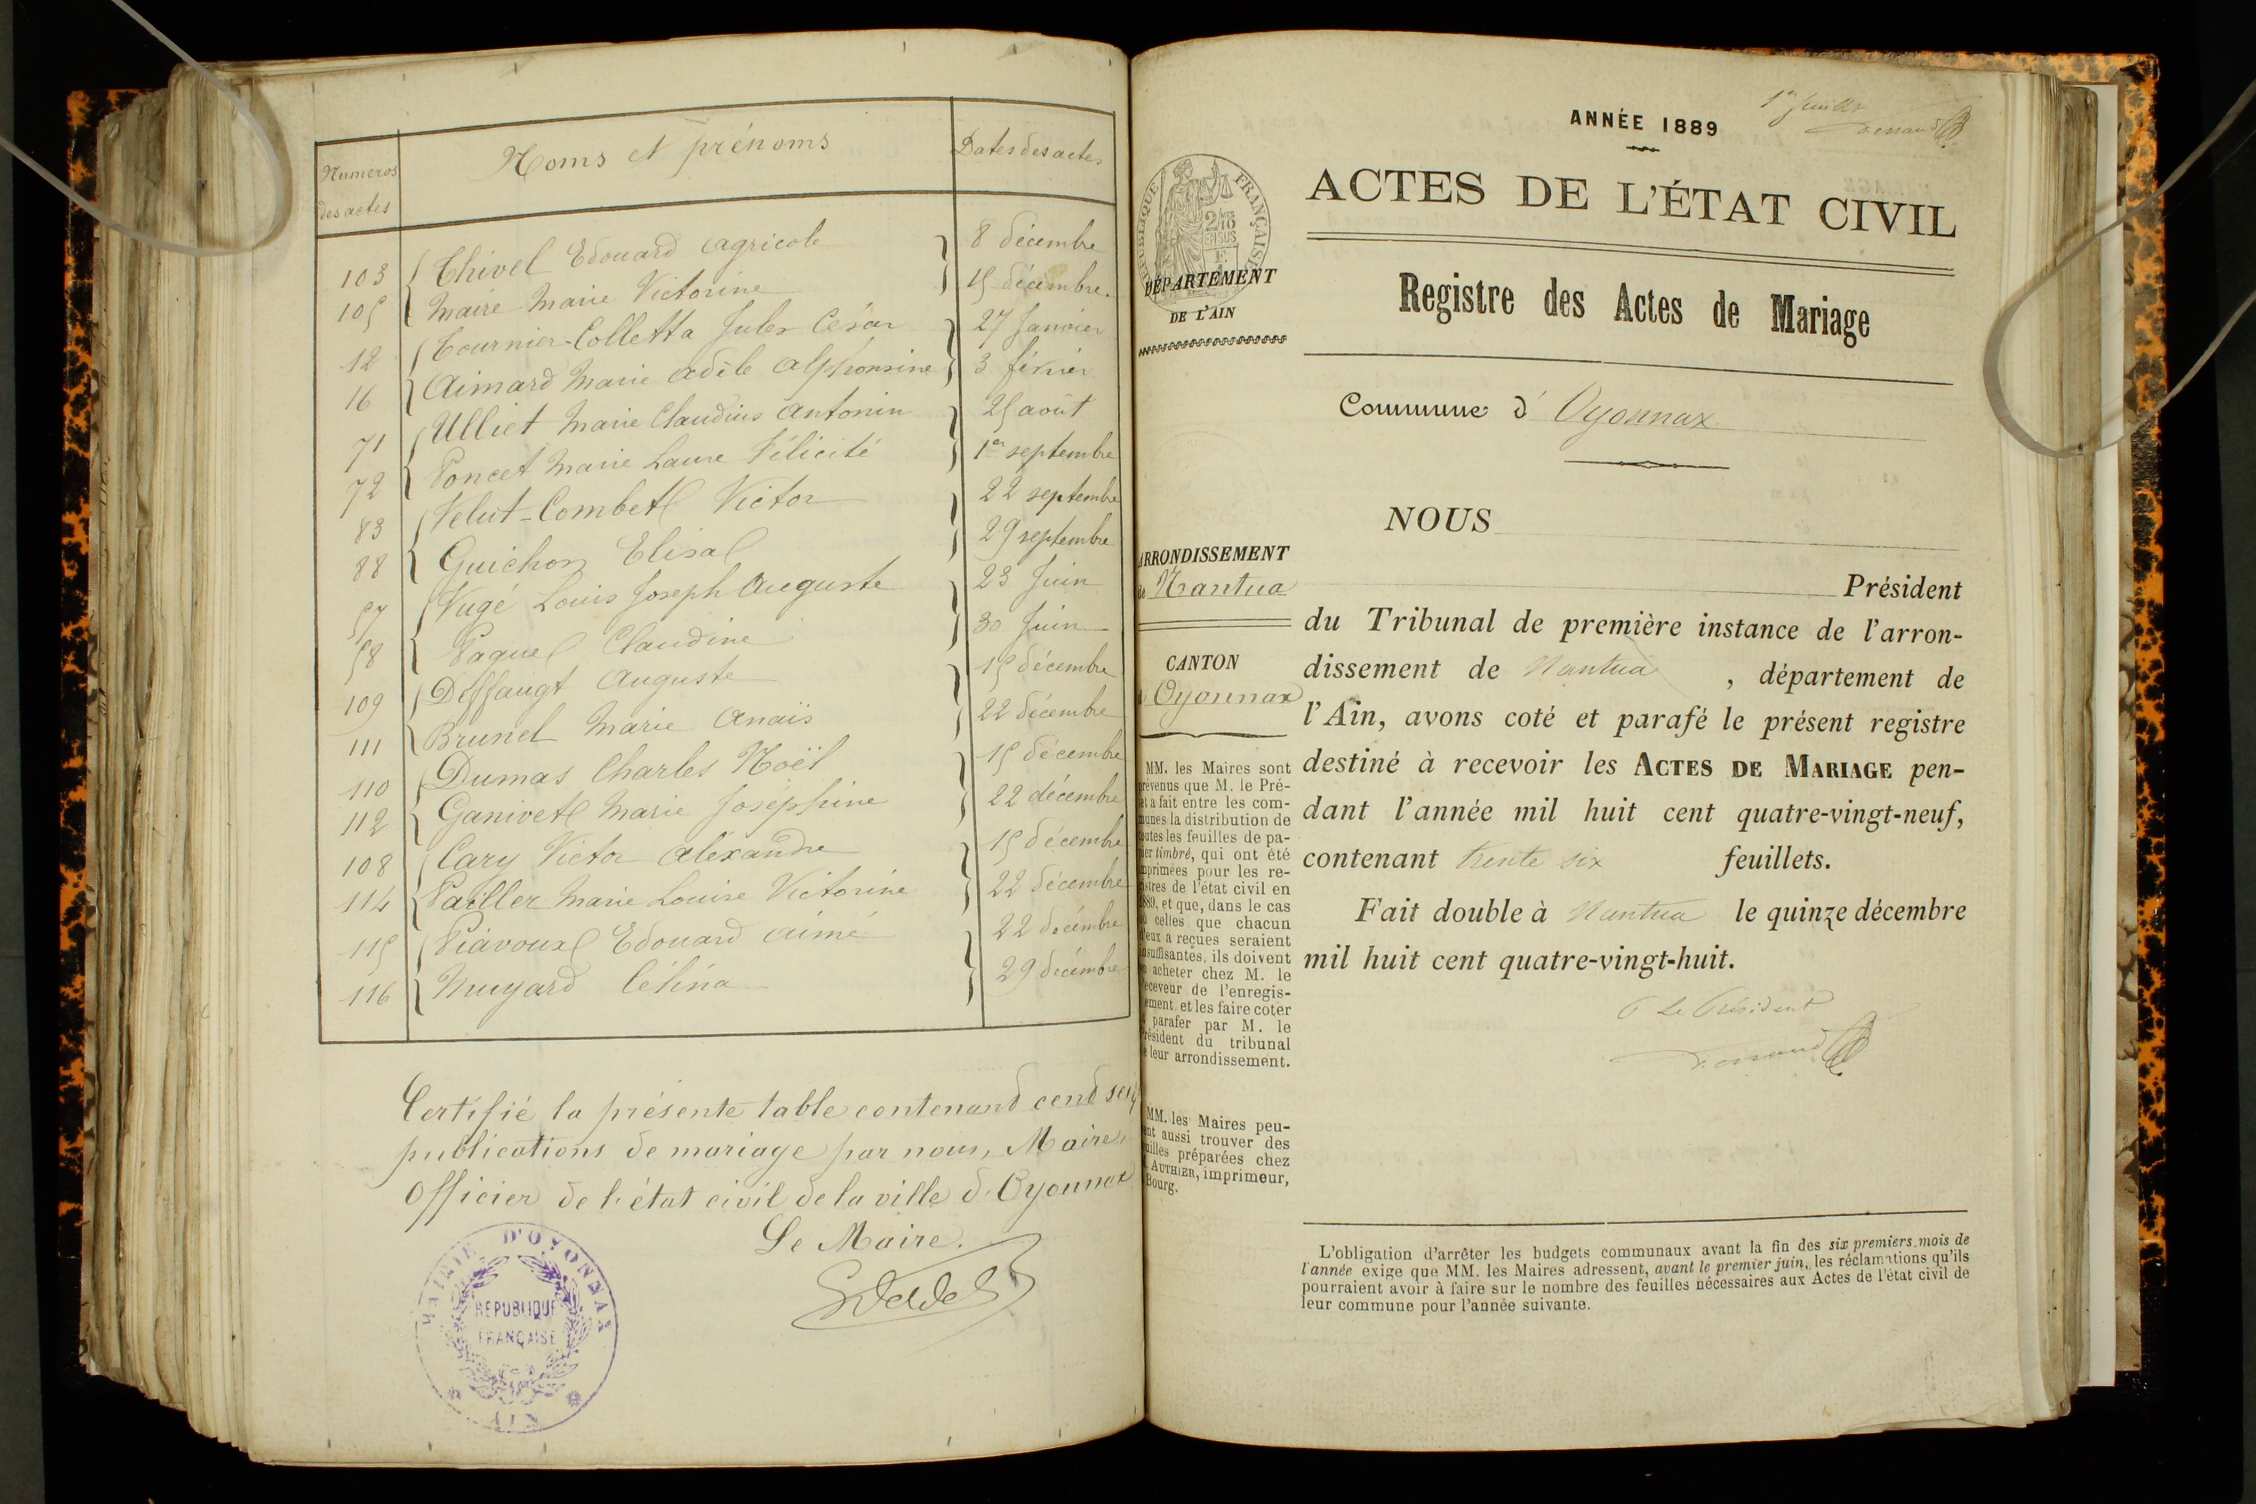 Numeros
des actes
Noms et prénoms
Dates des actes
103 Thivel Edouard Agricole 8 décembre
105 Maire Marie Victorine 15 décembre
12 Tournier-Colletta Jules César 27 Janvier
16 Aimard Marie Adèle Alphonsine 3 février
71 Ulliet Marie Claudius Antonin 25 août
72 Poncet Marie Laure Félicité 1er septembre
83 Velut-Combet Victor 22 septembre
88 Guichon Elisa 29 septembre
57 Vugé Louis Joseph Auguste 23 Juin
58 Paquel Claudine 30 Juin
109 Deffaugt Auguste 15 décembre
111 Brunet Marie Anaïs 22 décembre
110 Dumas Charles Noël 15 décembre
112 Ganivet Marie Joséphine 22 décembre
108 Cary Victor Alexandre 15 décembre
114 Pailler Marie Louise Victorine 22 décembre
115 Piavoux Edouard Aimé 22 décembre
116 Muyard Célina 29 décembre
Certifié la présente table contenant cent seize
publications de mariage par nous, Maire,
Officier de l'état civil de la ville d'Oyonnax
Le Maire.
MAIRIE D'OYONNAX
RÉPUBLIQUE
FRANÇAISE
AIN
1er feuillet
ANNÉE 1889
RÉPUBLIQUE FRANÇAISE
DÉPARTEMENT
DE L'AIN
ACTES DE L'ÉTAT CIVIL
Registre des Actes de Mariage
Commune d' Oyonnax
ARRONDISSEMENT
de Nantua
CANTON
d' Oyonnax
MM. les Maires sont
prévenus que M. le Pré-
fet a fait entre les com-
munes la distribution de
toutes les feuilles de pa-
pier timbré, qui ont été
imprimées pour les re-
gistres de l'état civil en
1889, et que, dans le cas
où celles que chacun
d'eux a reçues seraient
insuffisantes, ils doivent
en acheter chez M. le
receveur de l'enregis-
trement et les faire coter
et parafer par M. le
Président du tribunal
de leur arrondissement.
MM. les Maires peu-
vent aussi trouver des
feuilles préparées chez
M. AUTHIER, imprimeur,
Bourg.
NOUS
Président
du Tribunal de première instance de l'arron-
dissement de Nantua, département de
l'Ain, avons coté et parafé le présent registre
destiné à recevoir les ACTES DE MARIAGE pen-
dant l'année mil huit cent quatre-vingt-neuf,
contenant trente six feuillets.
Fait double à Nantua le quinze décembre
mil huit cent quatre-vingt-huit.
P Le Président
L'obligation d'arrêter les budgets communaux avant la fin des six premiers mois de
l'année exige que MM. les Maires adressent, avant le premier juin, les réclamations qu'ils
pourraient avoir à faire sur le nombre des feuilles nécessaires aux Actes de l'état civil de
leur commune pour l'année suivante.